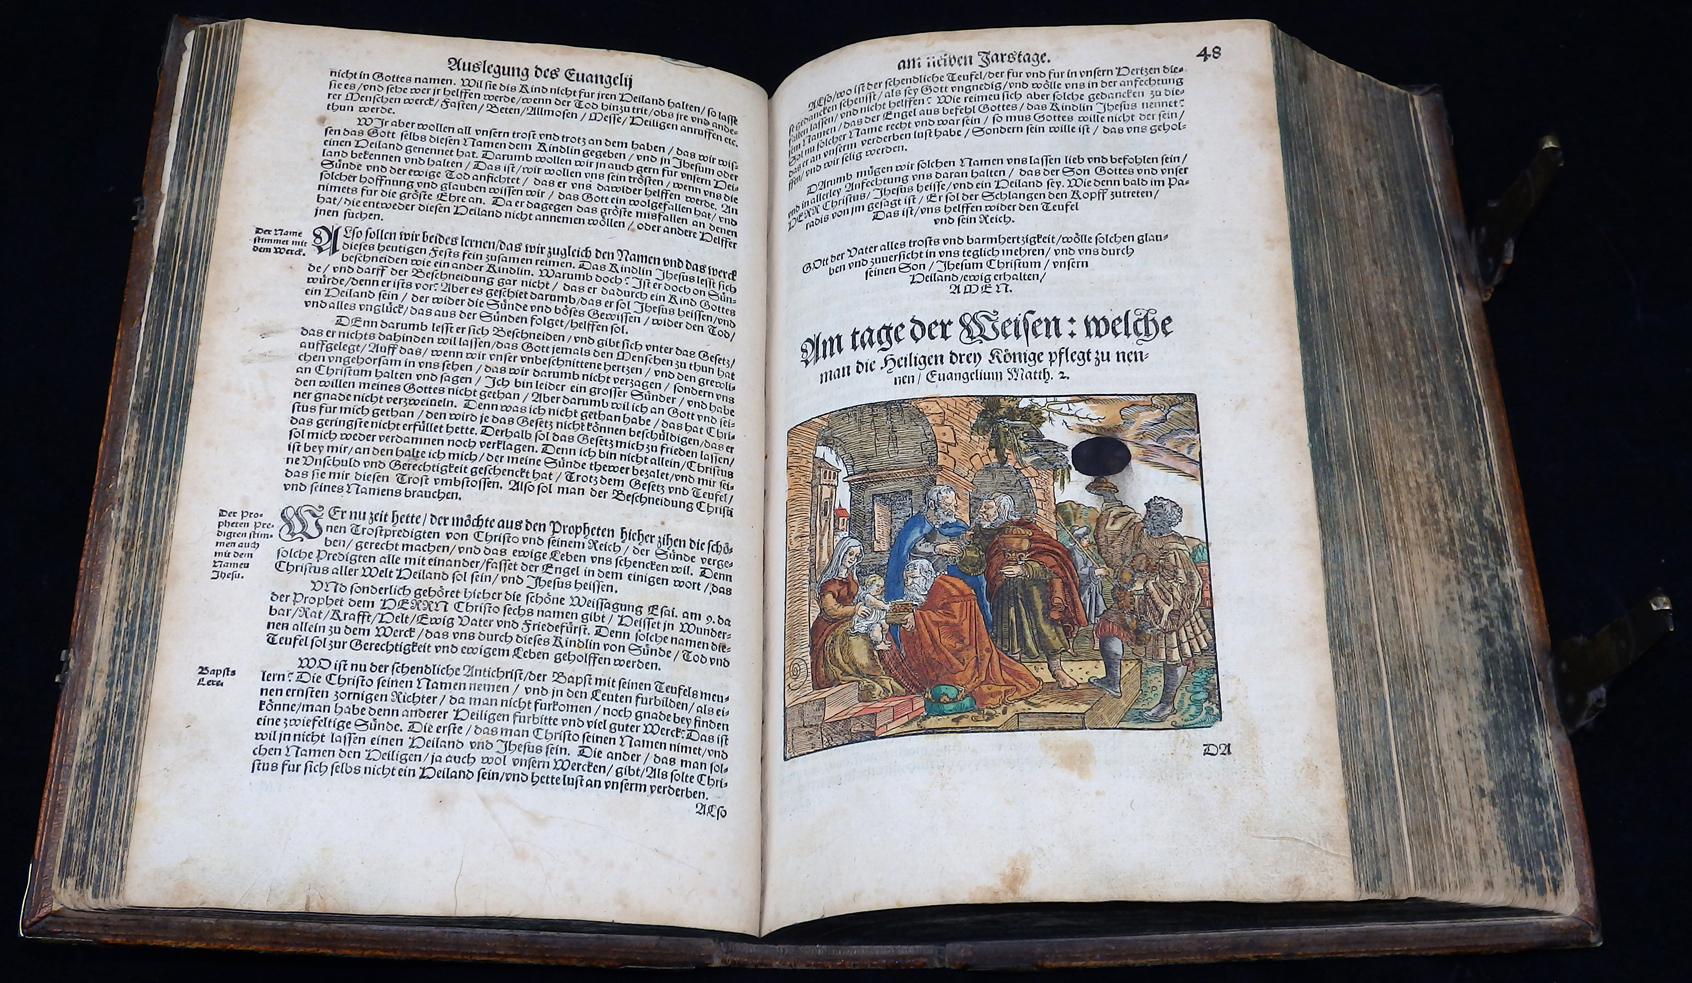 Auslegung des Euangelij
nicht in Gottes namen. Wil sie dis Kind nicht fur jren Heiland halten / so lasse
sie es / vnd sehe wer jr helffen werde / wenn der Tod hinzu trit / obs jre vnd ande-
rer Menschen werck / Fasten / Beten / Allmosen / Messe / Heiligen anruffen etc.
thun werde.
WIr aber wollen all vnsern trost vnd trotz an dem haben / das wir wis-
sen das Gott selbs diesen Namen dem Kindlin gegeben / vnd jn Jhesum oder
einen Heiland genennet hat. Darumb wollen wir jn auch gern fur vnsern Hei-
land bekennen vnd halten / Das ist / wir wollen vns sein trösten / wenn vns die
Sünde vnd der ewige Tod anfichtet / das er vns dawider helffen werde. An
solcher hoffnung vnd glauben wissen wir / das Gott ein wolgefallen hat / vnd
nimets fur die gröste Ehre an. Da er dagegen das gröste misfallen an denen
hat / die entweder diesen Heiland nicht annemen wöllen / oder andere Helffer
jnen suchen.
Der Name
stimmet mit
dem Werck.
ALso sollen wir beides lernen / das wir zugleich den Namen vnd das werck
dieses heutigen Fests fein zusamen reimen. Das Kindlin Jhesus lesst sich
beschneiden wie ein ander Kindlin. Warumb doch? Ist er doch on Sün-
de / vnd darff der Beschneidung gar nicht / das er dadurch ein Kind Gottes
würde / denn er ists vor? Aber es geschiet darumb / das er sol Jhesus heissen / vnd
ein Heiland sein / der wider die Sünde vnd böses Gewissen / wider den Tod /
vnd alles vnglück / das aus der Sünden folget / helffen sol.
DEnn darumb lesst er sich Beschneiden / vnd gibt sich vnter das Gesetz /
das er nichts dahinden wil lassen / das Gott jemals den Menschen zu thun hat
auffgelegt / Auff das / wenn wir vnser vnbeschnittene hertzen / vnd den grewli-
chen vngehorsam in vns sehen / das wir darumb nicht verzagen / sondern vns
an Christum halten vnd sagen / Ich bin leider ein grosser Sünder / vnd habe
den willen meines Gottes nicht gethan / Aber darumb wil ich an Gott vnd sei-
ner gnade nicht verzweiueln. Denn was ich nicht gethan habe / das hat Chri-
stus fur mich gethan / den wird je das Gesetz nicht können beschüldigen / das er
das geringste nicht erfüllet hette. Derhalb sol das Gesetz mich zu frieden lassen /
sol mich weder verdamnen noch verklagen. Denn ich bin nicht allein / Christus
ist bey mir / an den halte ich mich / der meine Sünde thewer bezalet / vnd mir sei-
ne Vnschuld vnd Gerechtigkeit geschenckt hat / Trotz dem Gesetz vnd Teufel /
das sie mir diesen Trost vmbstossen. Also sol man der Beschneidung Christi
vnd seines Namens brauchen.
Der Pro-
pheten Pre-
digten stim-
men auch
mit dem
Namen
Jhesu.
WEr nu zeit hette / der möchte aus den Propheten hieher zihen die schö-
nen Trostpredigten von Christo vnd seinem Reich / der Sünde verge-
ben / gerecht machen / vnd das ewige Leben vns schencken wil. Denn
solche Predigten alle miteinander / fasset der Engel in dem einigen wort / das
Christus aller Welt Heiland sol sein / vnd Jhesus heissen.
VNd sonderlich gehöret hieher die schöne Weissagung Esai. am 9. da
der Prophet dem HERRN Christo sechs namen gibt / Heisset jn Wunder-
bar / Rat / Krafft / Helt / Ewig Vater vnd Friedefürst. Denn solche namen die-
nen allein zu dem Werck / das vns durch dieses Kindlin von Sünde / Tod vnd
Teufel sol zur Gerechtigkeit vnd ewigem Leben geholffen werden.
Bapsts
Lere.
WO ist nu der schendliche Antichrist / der Bapst mit seinen Teufels men-
lern? Die Christo seinen Namen nemen / vnd jn den Leuten furbilden / als ei-
nen ernsten zornigen Richter / da man nicht furkomen / noch gnade bey finden
könne / man habe denn anderer Heiligen furbitte vnd viel guter Werck? Das ist
eine zwiefeltige Sünde. Die erste / das man Christo seinen Namen nimet / vnd
wil jn nicht lassen einen Heiland vnd Jhesus sein. Die ander / das man sol-
chen Namen den Heiligen / ja auch wol vnsern Wercken / gibt / Als solte Chri-
stus fur sich selbs nicht ein Heiland sein / vnd hette lust an vnserm verderben.
ALso
am neiwen Jarstage. 48
ALso / wo ist der schendliche Teufel / der fur vnd fur in vnsern Hertzen die-
se gedancken scheusst / als sey Gott vngnedig / vnd wölle vns in der anfechtung
fallen lassen / vnd nicht helffen? Wie reimen sich aber solche gedancken zu die-
sem Namen / das der Engel aus befehl Gottes / das Kindlin Jhesus nennet?
Sol nu solcher Name recht vnd war sein / so mus Gottes wille nicht der sein /
das er an vnserm verderben lust habe / Sondern sein wille ist / das vns gehol-
ffen / vnd wir selig werden.
DArumb mügen wir solchen Namen vns lassen lieb vnd befohlen sein /
vnd in allerley Anfechtung vns daran halten / das der Son Gottes vnd vnser
HERR Christus / Jhesus heisse / vnd ein Heiland sey. Wie denn bald im Pa-
radis von jm gesagt ist / Er sol der Schlangen den Kopff zutreten /
Das ist / vns helffen wider den Teufel
vnd sein Reich.
GOtt der Vater alles trosts vnd barmhertzigkeit / wölle solchen glau-
ben vnd zuuersicht in vns teglich mehren / vnd vns durch
seinen Son / Jhesum Christum / vnsern
Heiland / ewig erhalten /
AMEN.
Am tage der Weisen: welche
man die Heiligen drey Könige pflegt zu nen-
nen / Euangelium Matth. 2.
DA